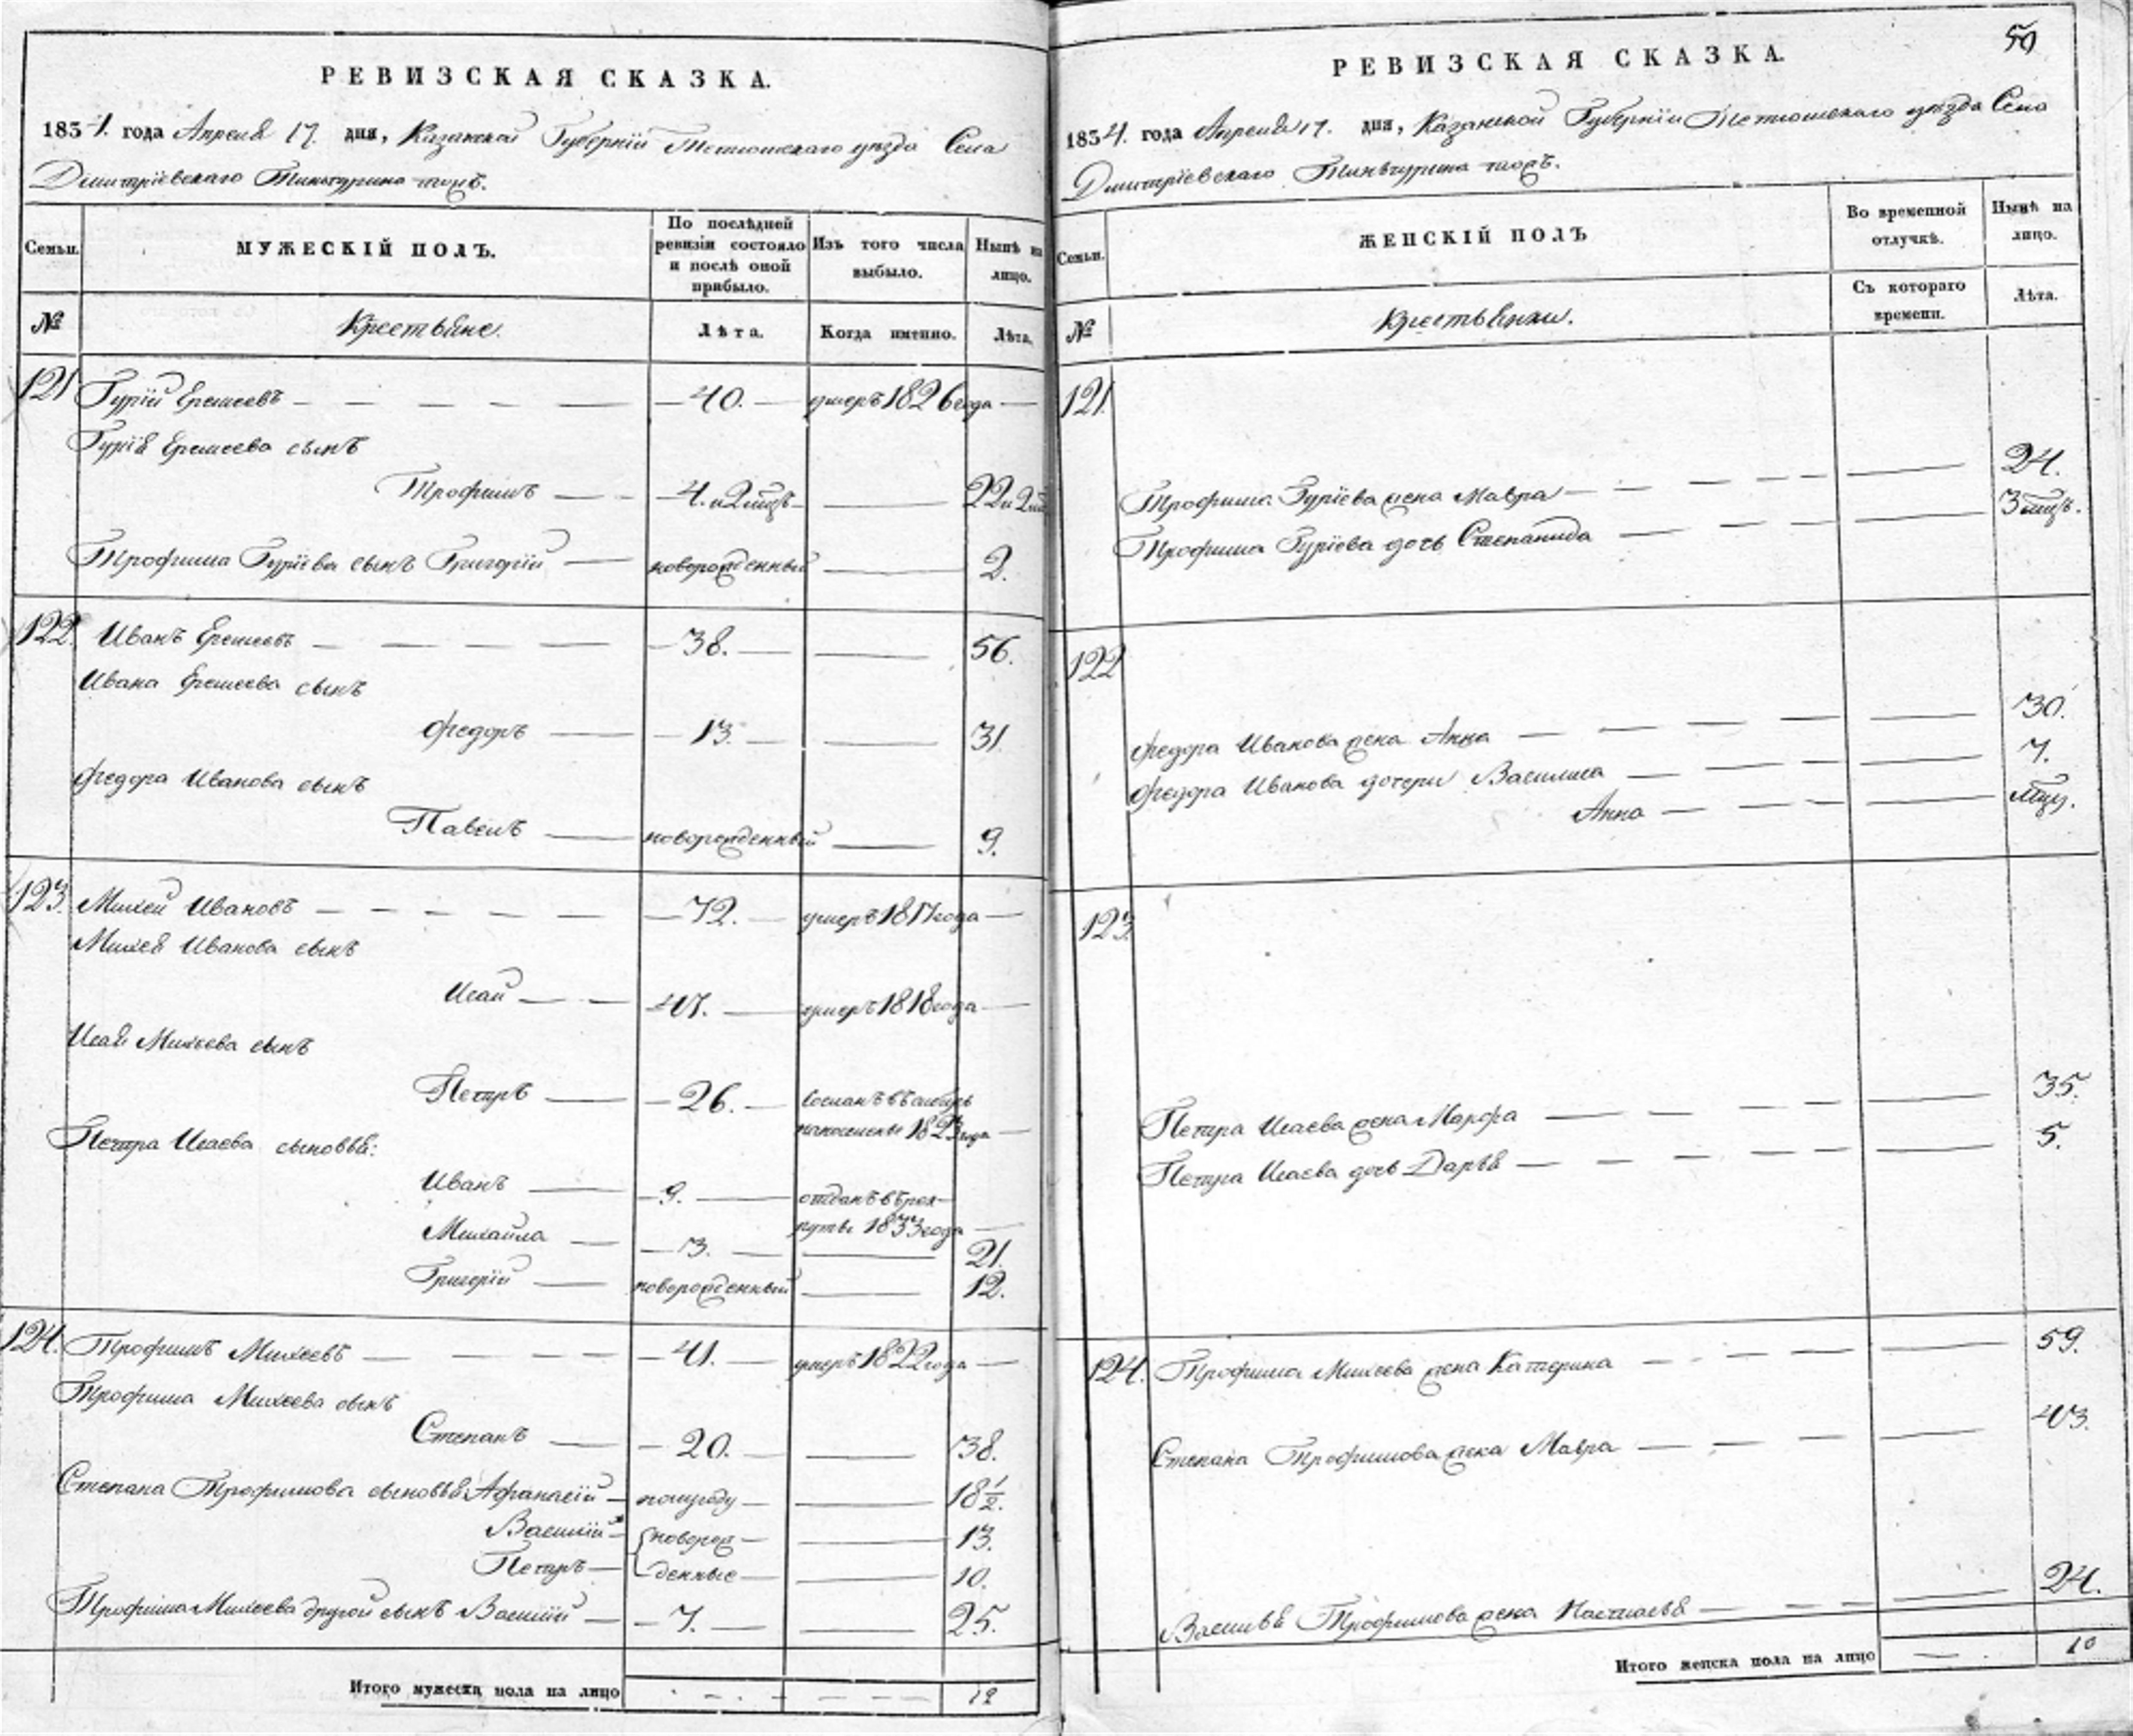 РЕВИЗСКАЯ СКАЗКА.
1834. года Апреля 17. дня, Казанской Губернии Тетюшскаго уезда Села
Дмитріевскаго тожъ.
Семьи.
МУЖЕСКІЙ ПОЛЪ.
По послѣдней ревизіи состояло и послѣ оной прибыло.
Изъ того числа выбыло.
Нынѣ на лицо.
№
Крестьяне.
Лѣта.
Когда именно.
Лѣта.
121 Гурій Еремеевъ 40. умеръ 1826 года
Гурія Еремеева сынъ
Трофимъ 4. и 2 мцъ 22 и 2 мц
Трофима Гуріева сынъ Григорій новорожденный 2.
122. Иванъ Еремеевъ 38. 56.
Ивана Еремеева сынъ
Федоръ 13. 31
Федора Иванова сынъ
Павелъ новорожденный 9.
123. Михей Ивановъ 72. умеръ 1817 года
Михея Иванова сынъ
Исай 47. умеръ 1818 года
Исая Михеева сынъ
Петръ 26. сосланъ въ сибирь
на поселенье года
Петра Исаева сыновья:
Иванъ 9. отданъ въ рек-
руты 1833 года
Михайла 3. 21.
Григорій новорожденный 12.
124. Трофимъ Михеевъ 41. умеръ 1822 года
Трофима Михеева сынъ
Степанъ 20. 38.
Степана Трофимова сыновья Афанасій полгоду 18 1/2.
Василій новорож- 13.
Петръ денные 10.
Трофима Михеева другой сынъ Василій 7. 25.
Итого мужеска пола на лицо 12
50
РЕВИЗСКАЯ СКАЗКА.
1834. года Апреля 17. дня, Казанской Губерніи Тетюшскаго уезда Села
Дмитріевскаго тожъ.
Семьи.
ЖЕНСКІЙ ПОЛЪ
Во временной отлучкѣ.
Нынѣ на лицо.
№
Крестьянки.
Съ котораго времени.
Лѣта.
121.
Трофима Гуріева жена Мавра 24.
Трофима Гуріева дочь Степанида 3 мцъ.
122
Федора Иванова жена Анна 30.
Федора Иванова дочери Василиса 7.
Анна мцъ.
123.
Петра Исаева жена Марфа 35.
Петра Исаева дочь Дарья 5.
124. Трофима Михеева жена Катерина 59.
Степана Трофимова жена Мавра 43.
Василья Трофимова жена Настасья 24.
Итого женска пола на лицо 10